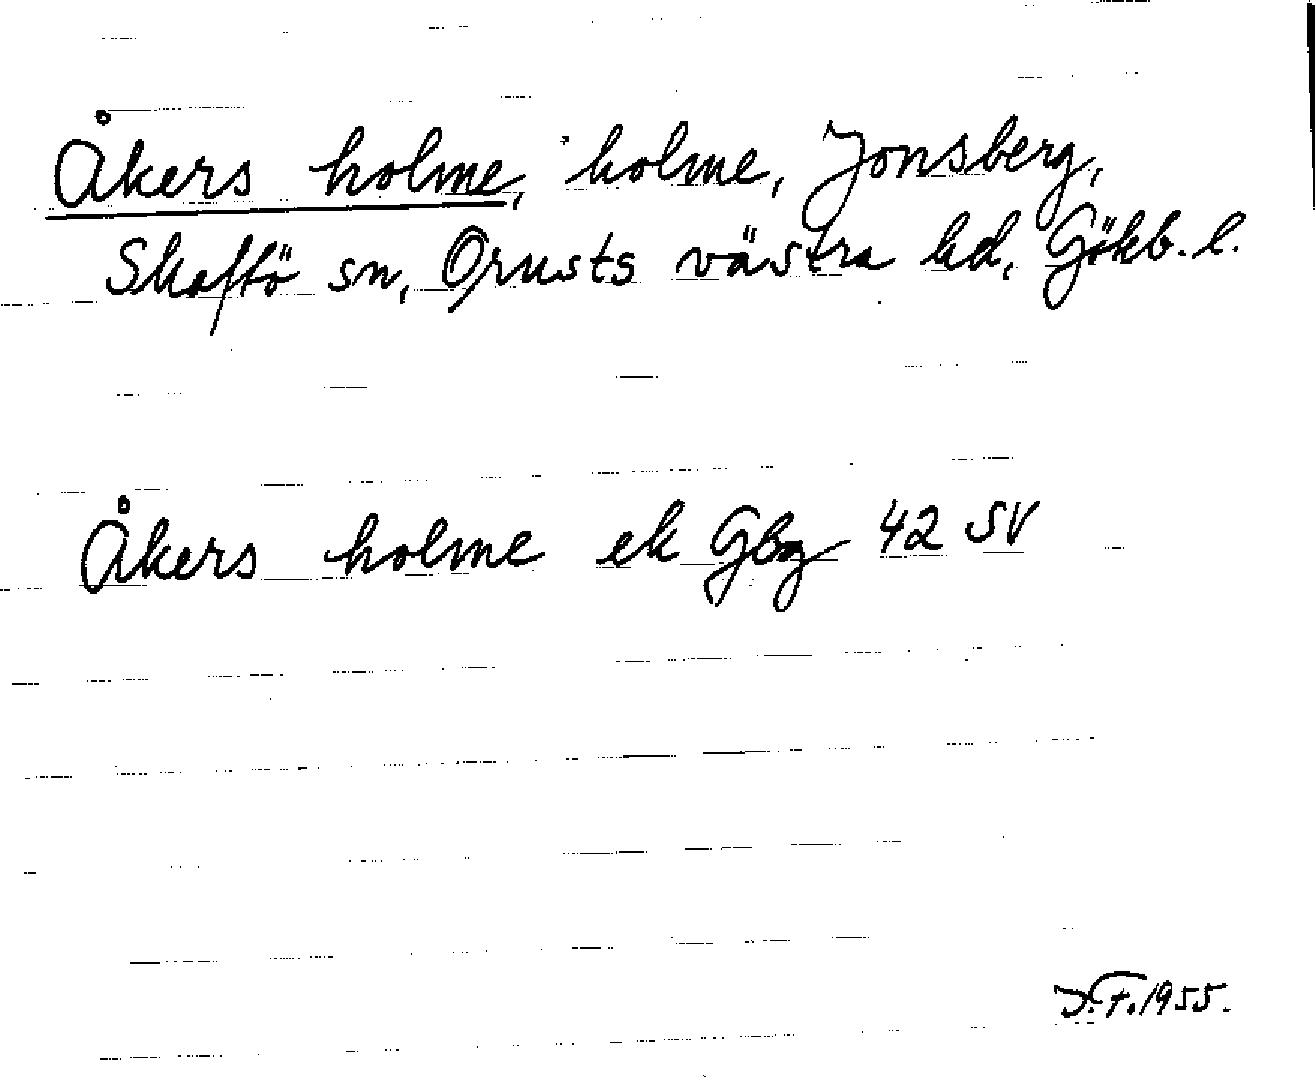 Åkers holme, holme, Jonsberg,
Skaftö sn, Orusts västra hd, Göhb. l.
Åkers holme ek Gbg 42 SV
D.F. 1955.